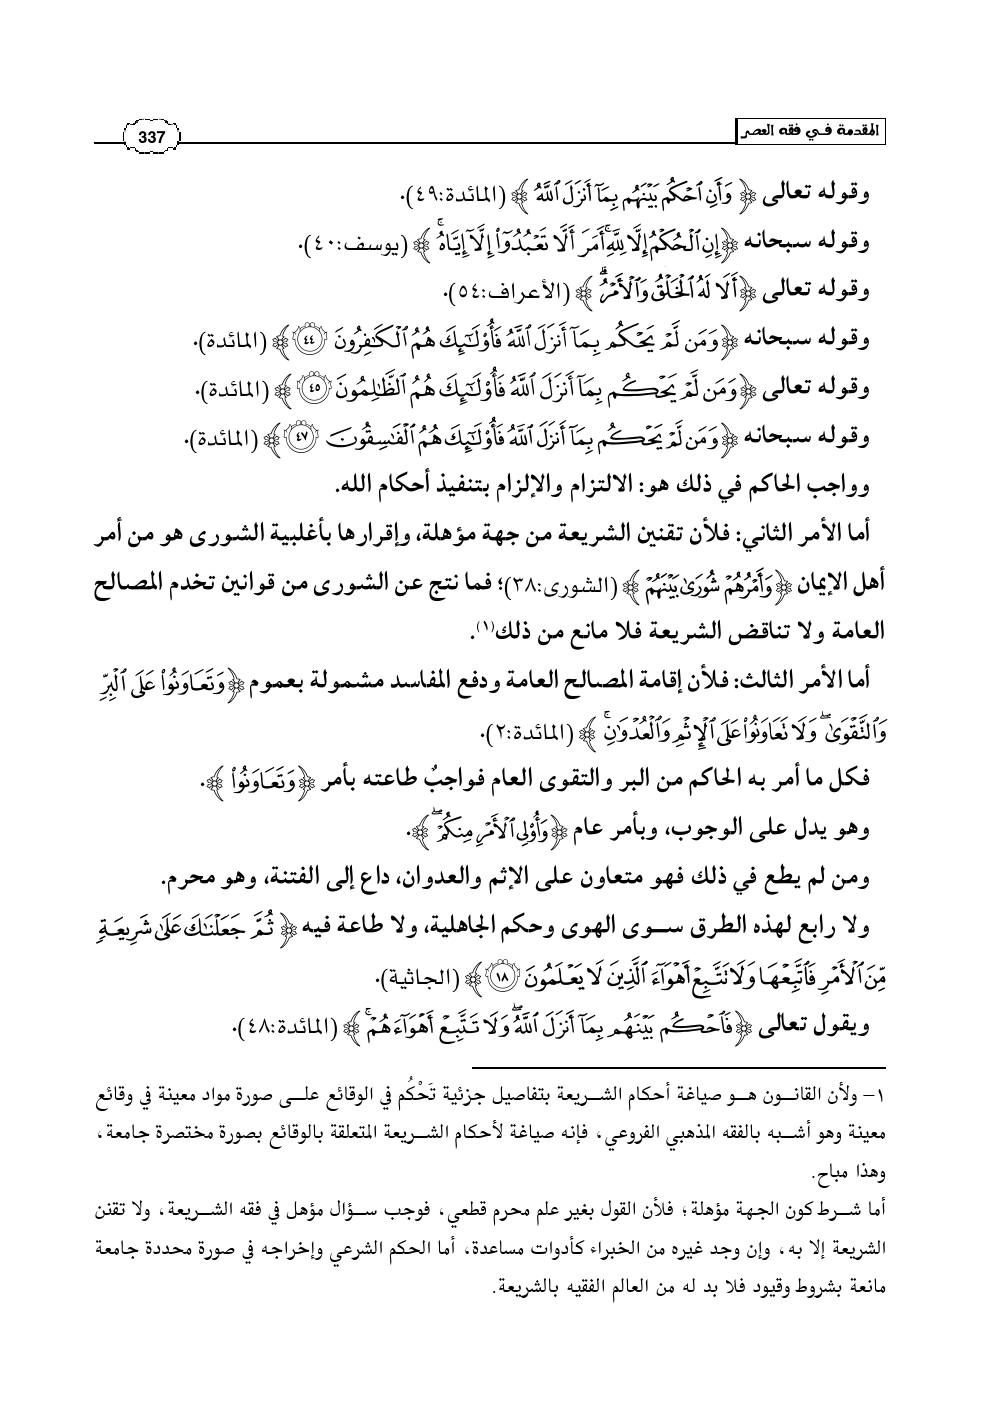 المقدمة في فقه العصر
337
وقوله تعالى ﴿ وَأَنِ ٱحْكُم بَيْنَهُم بِمَآ أَنزَلَ ٱللَّهُ ﴾ (المائدة:٤٩).
وقوله سبحانه ﴿إِنِ ٱلْحُكْمُ إِلَّا لِلَّهِ ۚ أَمَرَ أَلَّا تَعْبُدُوٓا۟ إِلَّآ إِيَّاهُ ۚ ﴾ (يوسف:٤٠).
وقوله تعالى ﴿أَلَا لَهُ ٱلْخَلْقُ وَٱلْأَمْرُ ۗ ﴾ (الأعراف:٥٤).
وقوله سبحانه ﴿وَمَن لَّمْ يَحْكُم بِمَآ أَنزَلَ ٱللَّهُ فَأُو۟لَـٰٓئِكَ هُمُ ٱلْكَـٰفِرُونَ ٤٤ ﴾ (المائدة).
وقوله تعالى ﴿وَمَن لَّمْ يَحْكُم بِمَآ أَنزَلَ ٱللَّهُ فَأُو۟لَـٰٓئِكَ هُمُ ٱلظَّـٰلِمُونَ ٤٥ ﴾ (المائدة).
وقوله سبحانه ﴿وَمَن لَّمْ يَحْكُم بِمَآ أَنزَلَ ٱللَّهُ فَأُو۟لَـٰٓئِكَ هُمُ ٱلْفَـٰسِقُونَ ٤٧ ﴾ (المائدة).
وواجب الحاكم في ذلك هو: الالتزام والإلزام بتنفيذ أحكام الله.
أما الأمر الثاني: فلأن تقنين الشريعة من جهة مؤهلة، وإقرارها بأغلبية الشورى هو من أمر
أهل الإيمان ﴿وَأَمْرُهُمْ شُورَىٰ بَيْنَهُمْ ﴾ (الشورى:٣٨)؛ فما نتج عن الشورى من قوانين تخدم المصالح
العامة ولا تناقض الشريعة فلا مانع من ذلك(١).
أما الأمر الثالث: فلأن إقامة المصالح العامة ودفع المفاسد مشمولة بعموم ﴿وَتَعَاوَنُوا۟ عَلَى ٱلْبِرِّ
وَٱلتَّقْوَىٰ ۖ وَلَا تَعَاوَنُوا۟ عَلَى ٱلْإِثْمِ وَٱلْعُدْوَٰنِ ۚ ﴾ (المائدة:٢).
فكل ما أمر به الحاكم من البر والتقوى العام فواجبٌ طاعته بأمر ﴿وَتَعَاوَنُوا۟ ﴾.
وهو يدل على الوجوب، وبأمر عام ﴿وَأُو۟لِى ٱلْأَمْرِ مِنكُمْ ۖ ﴾.
ومن لم يطع في ذلك فهو متعاون على الإثم والعدوان، داع إلى الفتنة، وهو محرم.
ولا رابع لهذه الطرق سوى الهوى وحكم الجاهلية، ولا طاعة فيه ﴿ ثُمَّ جَعَلْنَـٰكَ عَلَىٰ شَرِيعَةٍ
مِّنَ ٱلْأَمْرِ فَٱتَّبِعْهَا وَلَا تَتَّبِعْ أَهْوَآءَ ٱلَّذِينَ لَا يَعْلَمُونَ ١٨ ﴾ (الجاثية).
ويقول تعالى ﴿فَٱحْكُم بَيْنَهُم بِمَآ أَنزَلَ ٱللَّهُ ۖ وَلَا تَتَّبِعْ أَهْوَآءَهُمْ ۚ ﴾ (المائدة:٤٨).
١- ولأن القانون هو صياغة أحكام الشريعة بتفاصيل جزئية تَحْكُم في الوقائع على صورة مواد معينة في وقائع
معينة وهو أشبه بالفقه المذهبي الفروعي، فإنه صياغة لأحكام الشريعة المتعلقة بالوقائع بصورة مختصرة جامعة،
وهذا مباح.
أما شرط كون الجهة مؤهلة؛ فلأن القول بغير علم محرم قطعي، فوجب سؤال مؤهل في فقه الشريعة، ولا تقنن
الشريعة إلا به، وإن وجد غيره من الخبراء كأدوات مساعدة، أما الحكم الشرعي وإخراجه في صورة محددة جامعة
مانعة بشروط وقيود فلا بد له من العالم الفقيه بالشريعة.